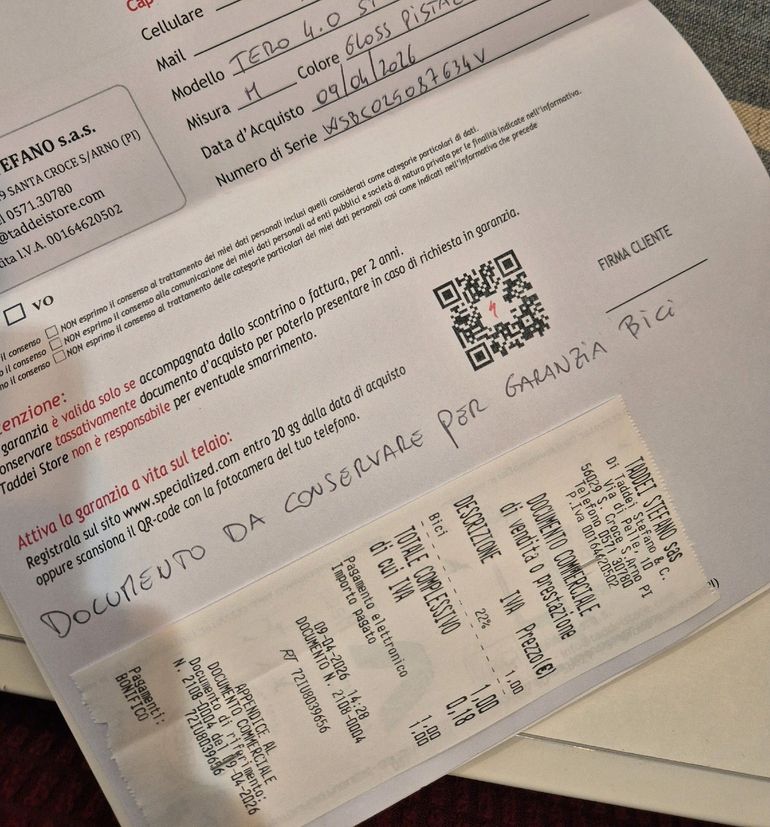 Cap
Cellulare
Mail
Modello TERO 4.0 ST
Misura M Colore GLOSS PISTA
Data d'Acquisto 09/04/2026
Numero di Serie WSBC025087634V
EFANO s.a.s.
9 SANTA CROCE S/ARNO (PI)
l 0571.30780
@taddeistore.com
ita I.V.A. 00164620502
VO
il consenso NON esprimo il consenso al trattamento dei miei dati personali inclusi quelli considerati come categorie particolari di dati.
o il consenso NON esprimo il consenso alla comunicazione dei miei dati personali ad enti pubblici e società di natura privata per le finalità indicate nell'informativa.
no il consenso NON esprimo il consenso al trattamento delle categorie particolari dei miei dati personali così come indicati nell'informativa che precede
enzione:
garanzia è valida solo se accompagnata dallo scontrino o fattura, per 2 anni.
onservare tassativamente documento d'acquisto per poterlo presentare in caso di richiesta in garanzia.
Taddei Store non è responsabile per eventuale smarrimento.
FIRMA CLIENTE
Attiva la garanzia a vita sul telaio:
Registrala sul sito www.specialized.com entro 20 gg dalla data di acquisto
oppure scansiona il QR-code con la fotocamera del tuo telefono.
DOCUMENTO DA CONSERVARE PER GARANZIA BICI
TADDEI STEFANO sas
Di Taddei Stefano & C.
Via di Pelle, 10
56029 S. Croce S.Arno PI
Telefono 0571 30780
P.Iva 00164620502
DOCUMENTO COMMERCIALE
di vendita o prestazione
DESCRIZIONE IVA Prezzo(€)
Bici 22% 1.00
TOTALE COMPLESSIVO 1.00
di cui IVA 0.18
Pagamento elettronico 1.00
Importo pagato 1.00
09-04-2026 14:28
DOCUMENTO N. 2108-0004
RT 72IU8039656
APPENDICE AL
DOCUMENTO COMMERCIALE
Documento di riferimento:
N. 2108-0004 del 09-04-2026
72IU8039656
Pagamenti:
BONIFICO